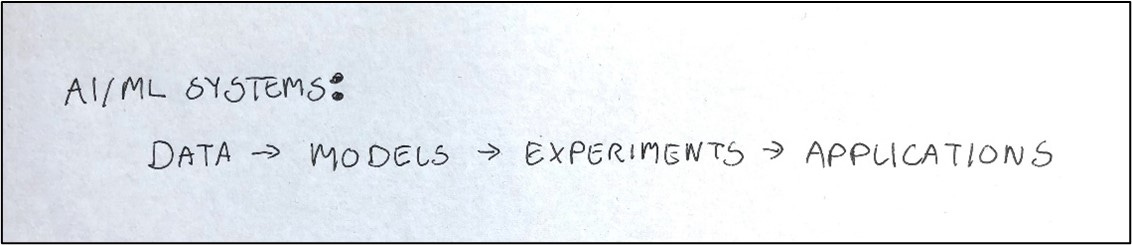 AI/ML SYSTEMS:
DATA → MODELS → EXPERIMENTS → APPLICATIONS